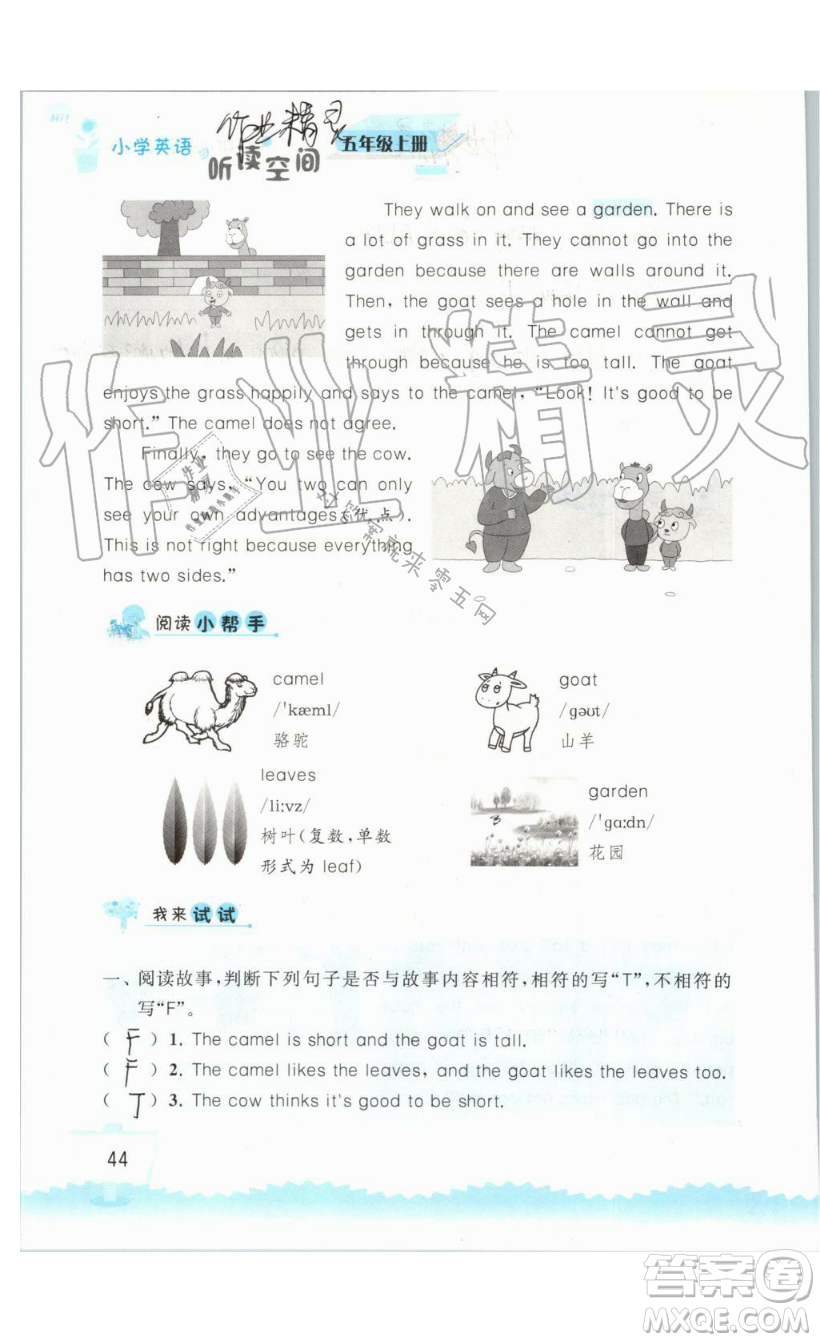 小学英语
作业精灵
听读空间
五年级上册
They walk on and see a garden. There is
a lot of grass in it. They cannot go into the
garden because there are walls around it.
Then, the goat sees a hole in the wall and
gets in through it. The camel cannot get
through because he is too tall. The goat
enjoys the grass happily and says to the camel, “Look! It's good to be
short.” The camel does not agree.
Finally, they go to see the cow.
The cow says, “You two can only
see your own advantages(优点).
This is not right because everything
has two sides.”
作业精灵
对答案就来零五网
阅读小帮手
camel
/ˈkæml/
骆驼
goat
/gəʊt/
山羊
leaves
/liːvz/
树叶(复数,单数
形式为 leaf)
garden
/ˈgɑːdn/
花园
我来试试
一、阅读故事,判断下列句子是否与故事内容相符,相符的写“T”,不相符的
写“F”。
( F ) 1. The camel is short and the goat is tall.
( F ) 2. The camel likes the leaves, and the goat likes the leaves too.
( T ) 3. The cow thinks it's good to be short.
44
答案圈
MXQE.COM